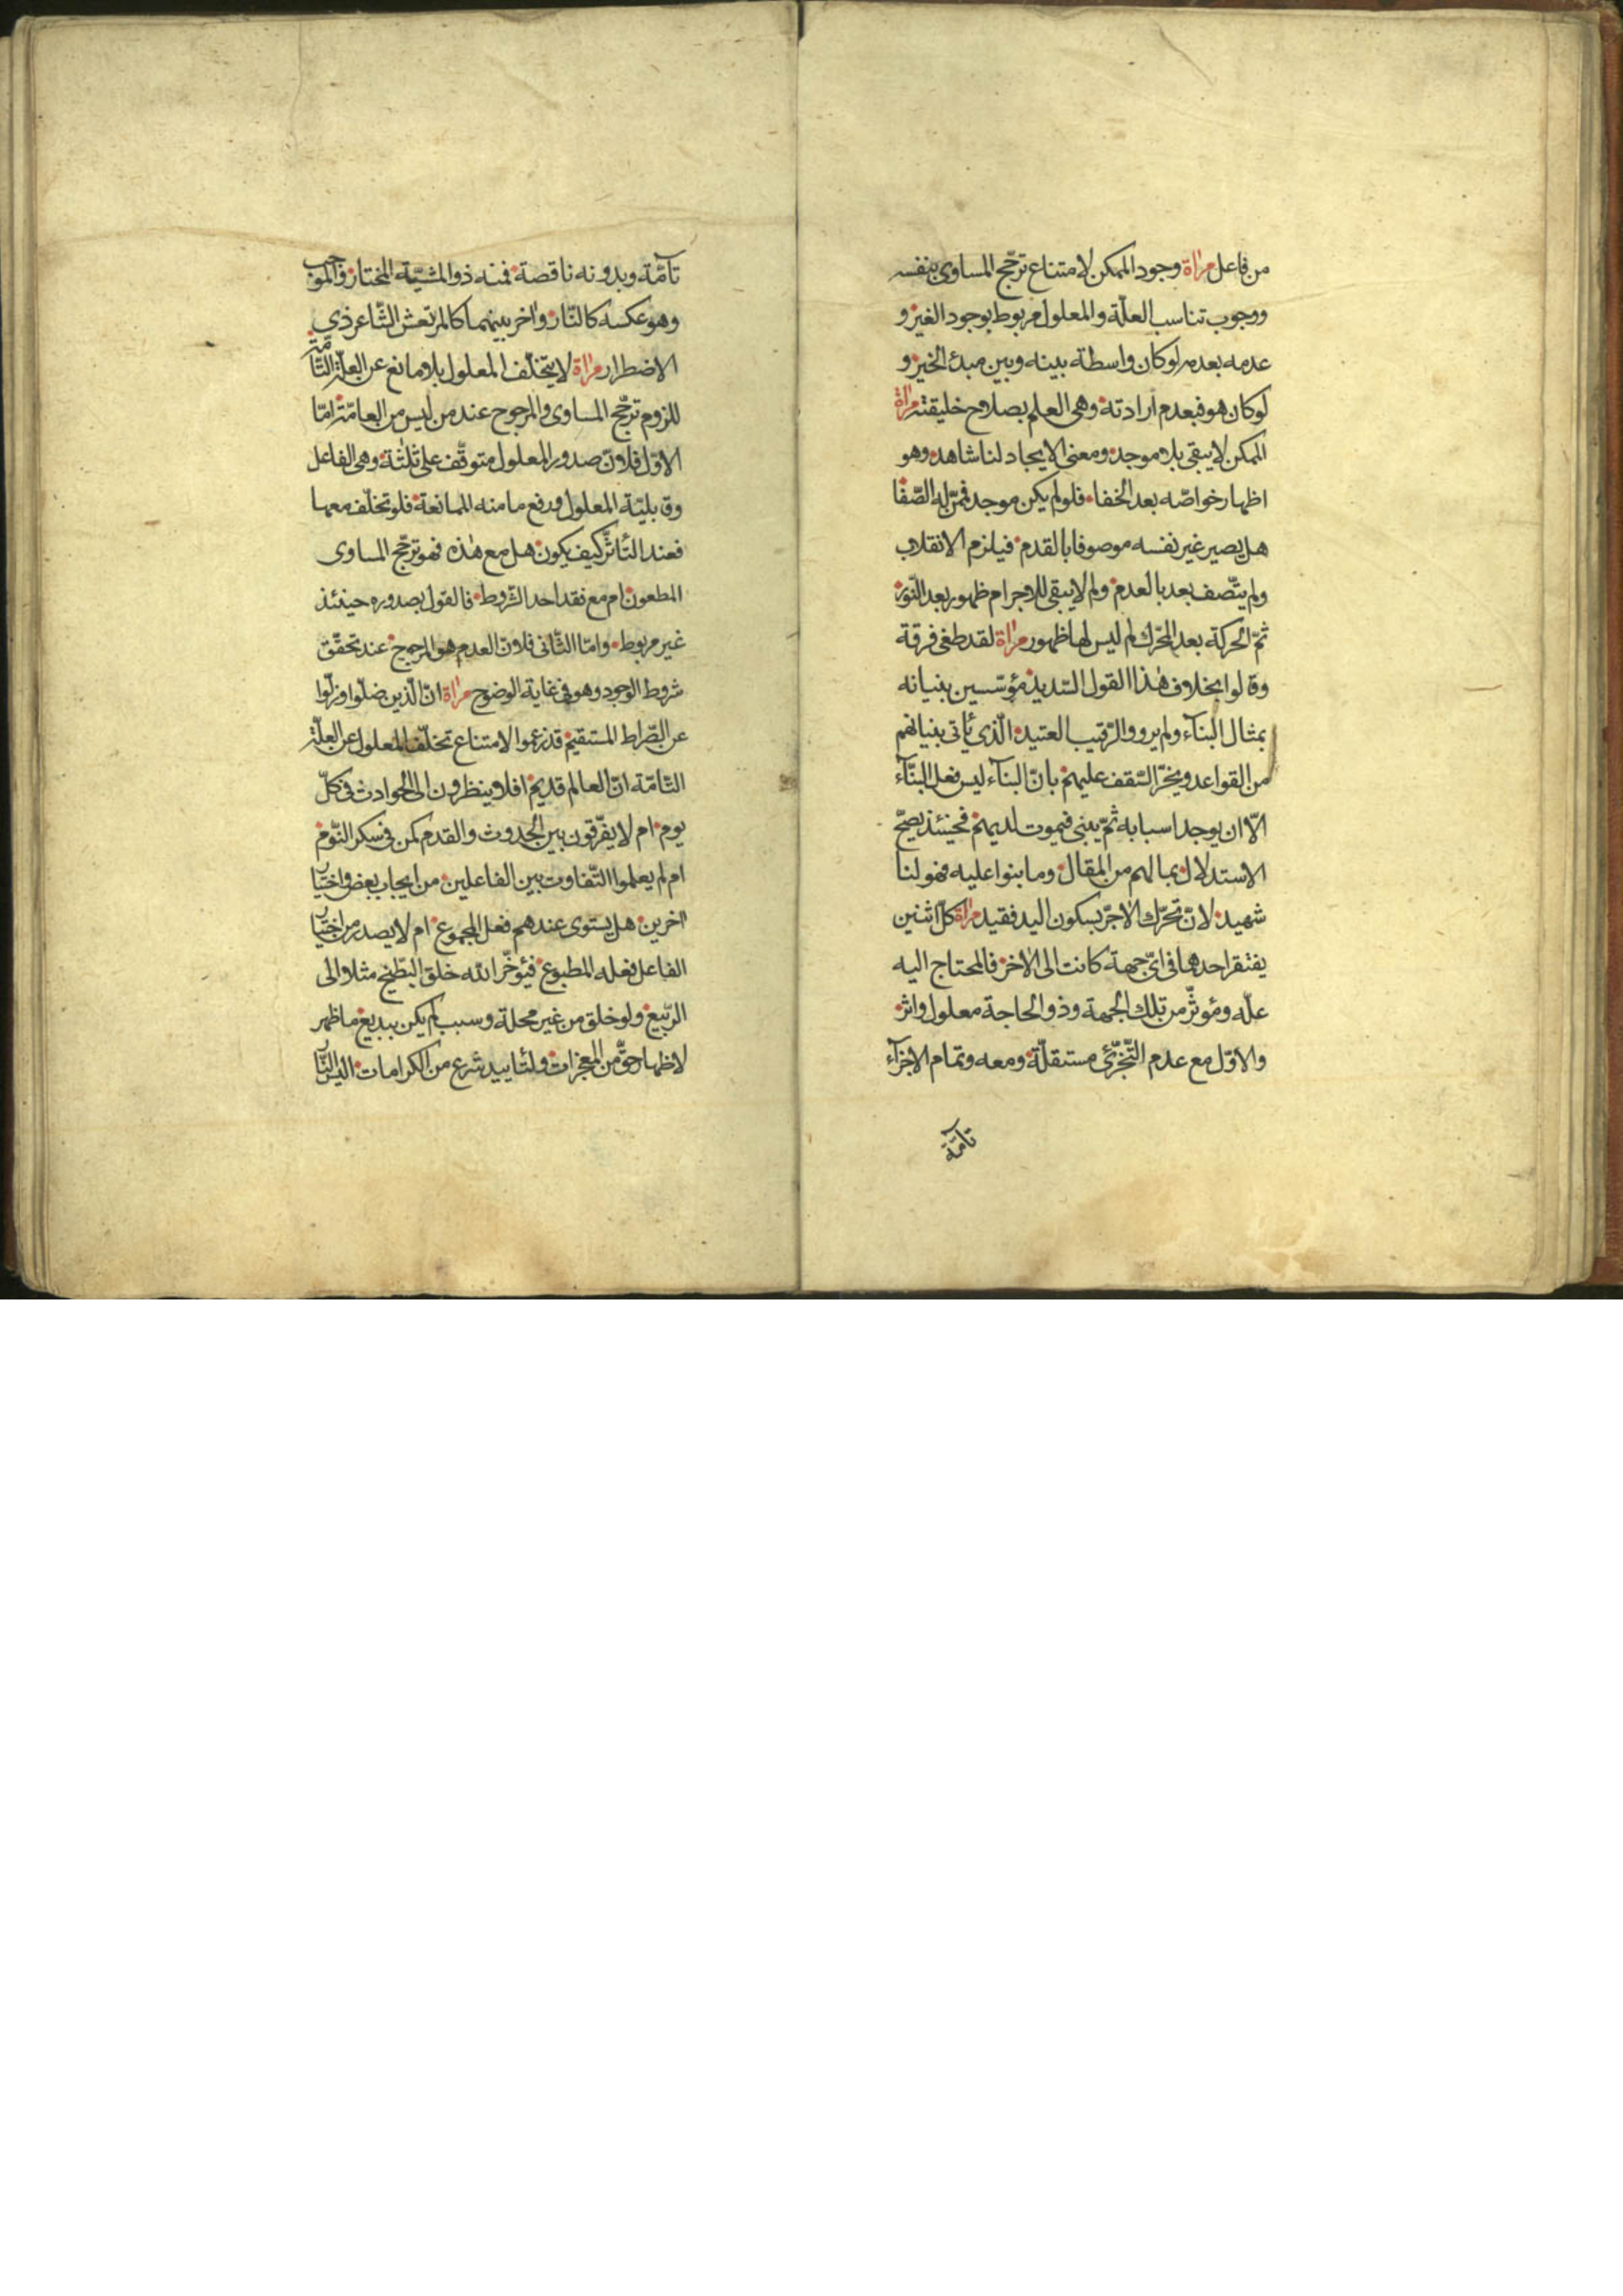 من فاعل مرٰاة وجود الممكن لامتناع ترجّح المساوى بنفسه
ووجوب تناسب العلّة والمعلول مربوط بوجود الغير و
عدمه بعدمه لوكان واسطة بينه وبين مبدء الخير و
لوكان هو فبعدم ارادته وهى العلم بصلاح خليقته مرٰاة
الممكن لا يبقى بلا موجد ومعنى الايجاد لنا شاهد وهو
اظهار خواصّه بعد الخفاء فلولم يكن موجد فمرّ له الصّفا
هل يصير غير نفسه موصوفا بالقدم فيلزم الانقلاب
ولم يتّصف بعد بالعدم ولم لا يبقى للاجرام ظهور بعد النّور
ثمّ الحركة بعد المحّرك لم ليس لها ظهور مرٰاة لقد طغى فرقة
وقالوا بخلاف هٰذا القول السّديد مؤسّسين بنيانه
بمثال البنآء ولم يروو الرّقيب العتيد الّذى يأتى بنيانهم
من القواعد ويخرّ السّقف عليهم بانّ البنآء ليس فعل البنّآء
الّا ان يوجد اسبابه ثمّ يبنى فيموت لديهم فحينئذ يصحّ
الاستدلال بما لهم من المقال وما بنوا عليه فهو لنا
شهيد لانّ تحرّك الاٰجرّ بسكون اليد فقيد مرٰاة كلّ اثنين
يفتقر احدهما فى اىّ جهة كانت الى الاٰخر فالمحتاج اليه
علّه ومؤثّر من تلك الجهة وذو الحاجة معلول واثر
والاوّل مع عدم التّجزّئ مستقلّة ومعه وتمام الاجزآء
تآمّة
تآمّة وبدونه ناقصة فمنه ذوالمشيّة المختار والموجب
وهو عكسه كالنّار واٰخر بينهما كالمرتعش الشّاعر ذي
الاضطرار مرٰاة لا يتخلّف المعلول بلا مانع عن العلّة التّامّة
للزوم ترجّح المساوى والمرجوح عند من ليس من العامّة امّا
الاوّل فلانّ صدور المعلول متوقّف على ثلٰثة وهى الفاعل
وقابليّة المعلول ورفع ما منه الممانعة فلو تخلّف معها
فعند التّأثّر كيف يكون هل مع هٰذه فهو ترجّح المساوى
المطعون ام مع فقد احد الشّروط فالقول بصدوره حينئذ
غير مربوط وامّا الثّانى فلانّ العدم هو المرجوح عند تحقّق
شروط الوجود وهو فى غاية الوضوح مرٰاة انّ الّذين ضلّوا وزلّوا
عن الصّراط المستقيم قد زعموا لامتناع تخلّف المعلول عن العلّة
التّامّة انّ العالم قديم افلا ينظرون الى الحوادث فى كلّ
يوم ام لا يفرّقون بين الحدوث والقدم كمن فى سكر النّوم
ام لم يعلموا التّفاوت بين الفاعلين من ايجاب بعض واختيار
اٰخرين هل يستوى عندهم فعل المجموع ام لا يصدر من اختيار
الفاعل فعله المطبوع فيؤخّر الله خلق البطّيخ مثلا الى
الرّبيع ولو خلق من غير محلة وسبب لم يكن ببديع ما ظهر
لاظهار حقّ من المعجزات ولتأييد شرع من الكرامات اليس النّار